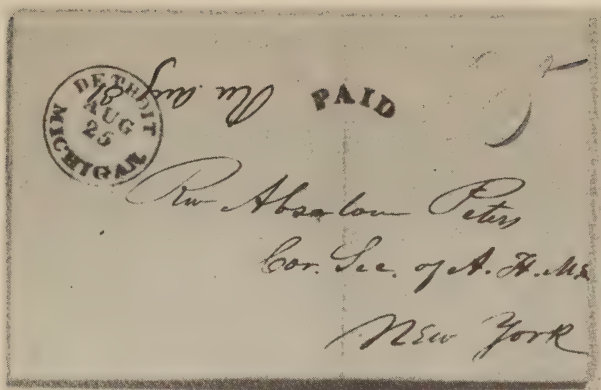 DETROIT
AUG
25
MICHIGAN
PAID
Rev Absalom Peters
Cor. Sec. of A. H. M. S.
New York